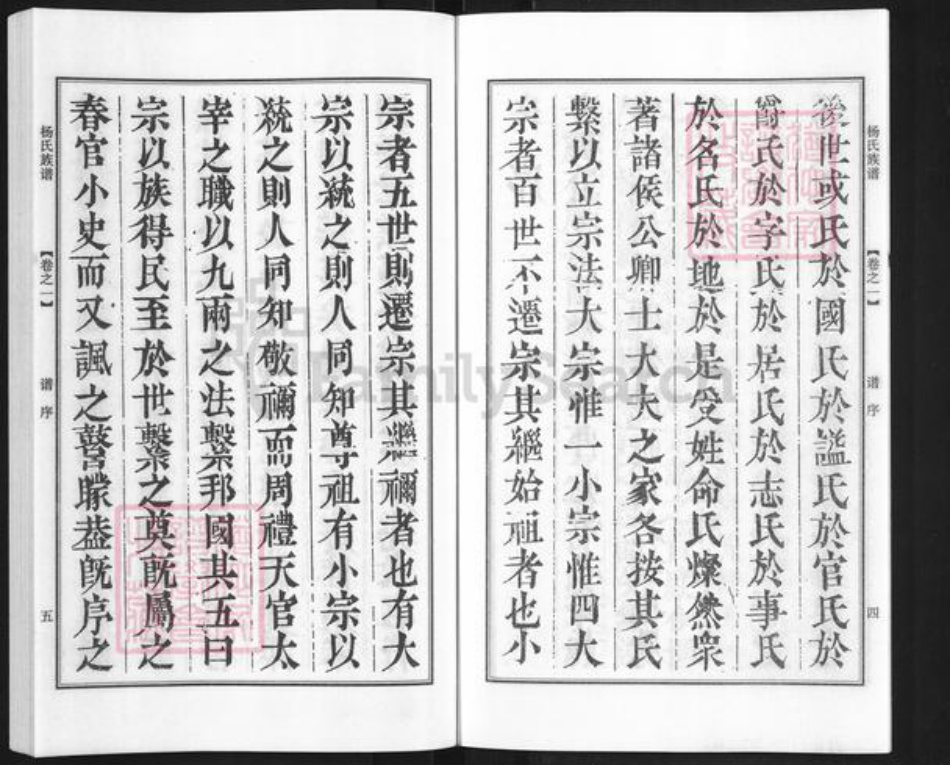 杨氏族谱 【卷之一】 谱序 四
後世或氏於國氏於謚氏於官氏於
爵氏於字氏於居氏於志氏於事氏
於名氏於地於是受姓命氏燦然衆
著諸侯公卿士大夫之家各按其氏
繫以立宗法大宗惟一小宗惟四大
宗者百世不遷宗其繼始祖者也小
宗者五世則遷宗其繼禰者也有大
宗以統之則人同知尊祖有小宗以
統之則人同知敬禰而周禮天官太
宰之職以九兩之法繫邦國其五曰
宗以族得民至於世繫之奠既屬之
春官小史而又諷之瞽矇盖既序之
杨氏族谱 【卷之一】 谱序 五
FamilySearch